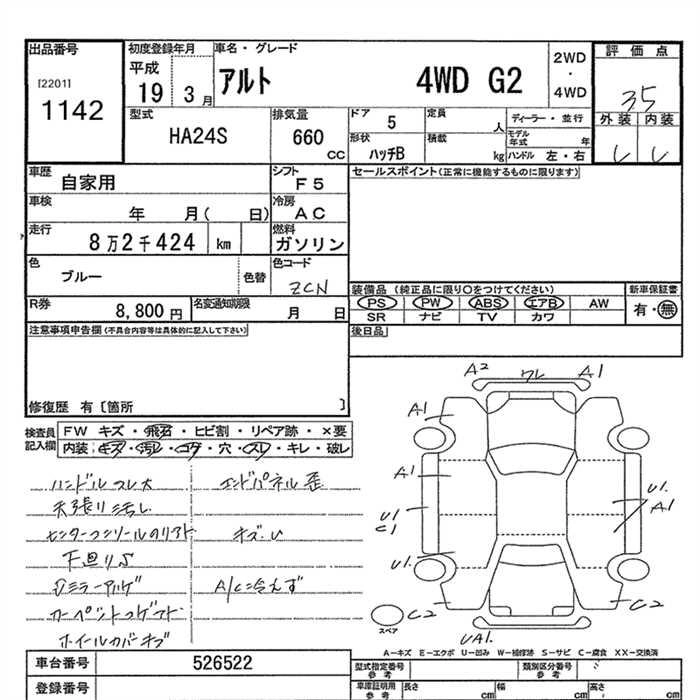 出品番号
[2201]
1142
初度登録年月
平成
19 3月
車名・グレード
アルト 4WD G2
2WD
・
4WD
評価点
35
外装 内装
型式
HA24S
排気量
660
CC
ドア 5
形状
ハッチB
定員
人
積載
kg
ディーラー・並行
モデル年式 年
ハンドル 左・右
車歴
自家用
シフト
F5
車検
年 月( 日)
冷房
AC
走行
8万2千424 km
燃料
ガソリン
色
ブルー
色替
色コード
ZCN
R券
8,800円
名変通知期限
月 日
セールスポイント(正常に機能するものに限ります)
装備品(純正品に限り○をつけてください)
新車保証書
PS PW ABS エアB AW
有・無
SR ナビ TV カワ
後日品
注意事項申告欄(不具合内容等は具体的に記入して下さい)
修復歴 有〔箇所 〕
検査員記入欄
FW キズ・飛石・ヒビ割・リペア跡・×要
内装:キズ・汚レ・コゲ・穴・スレ・キレ・破レ
ハンドルスレ大
天張り汚レ
下回りS
カーペットコゲ
ホイールカバーキズ
エンドパネル歪
キズ.U
A/C冷えず
A2 ワレ A1
A1
A1
U1
C1
U1.
C2
U1.
A1
C2
UA1.
スペア
A―キズ E―エクボ U―凹み W―補修跡 S―サビ C―腐食 XX―交換済
車台番号
526522
登録番号
型式指定番号
参考
類別区分番号
参考
車庫証明用
参考
長さ cm
幅 cm
高さ cm